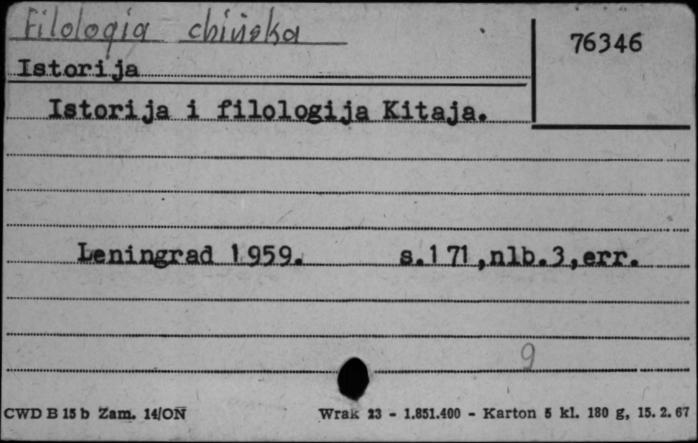 Filologia chińska
76346
Istorija
Istorija i filologija Kitaja.
Leningrad 1959. s.171,nlb.3,err.
9
CWD B 15 b Zam. 14/ON Wrak 23 - 1.851.400 - Karton 5 kl. 180 g, 15. 2. 67